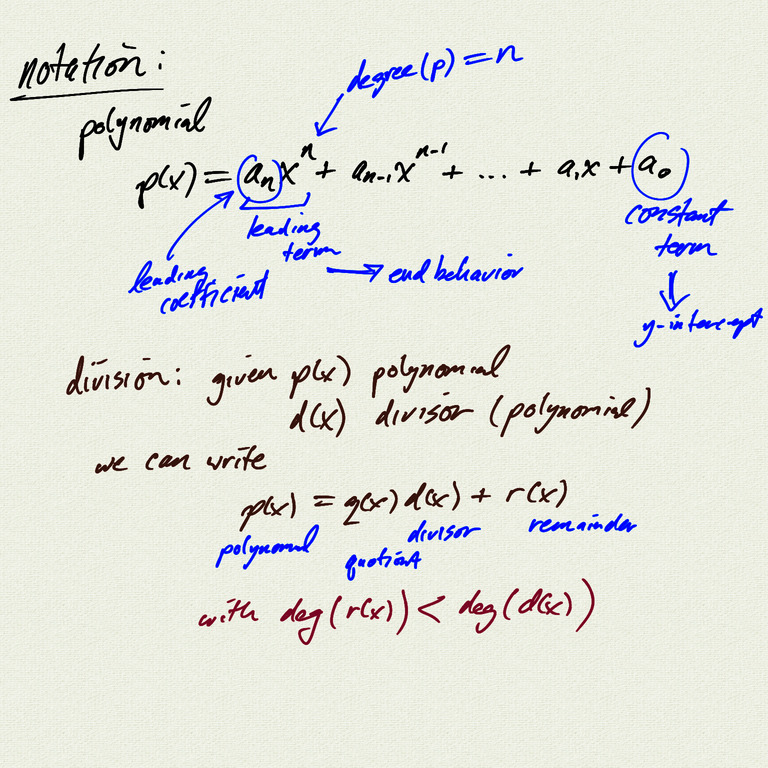 notation:
degree(p) = n
polynomial
p(x) = aₙxⁿ + aₙ₋₁xⁿ⁻¹ + ... + a₁x + a₀
leading term
constant term
leading coefficient
→ end behavior
↓
y-intercept
division: given p(x) polynomial
d(x) divisor (polynomial)
we can write
p(x) = q(x) d(x) + r(x)
polynomial quotient divisor remainder
with deg(r(x)) < deg(d(x))